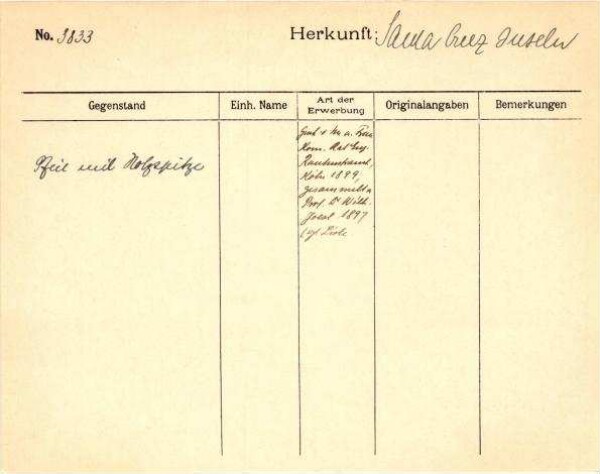 No. 3833
Herkunft: Santa Cruz Inseln
Gegenstand
Einh. Name
Art der Erwerbung
Originalangaben
Bemerkungen
Pfeil mit Holzspitze
Gesch. v. Hr. u. Frau
Kom. Rat Eug.
Rautenstrauch,
Köln 1899,
gesammelt v.
Prof. Dr Wilh.
Joest 1897
Liste